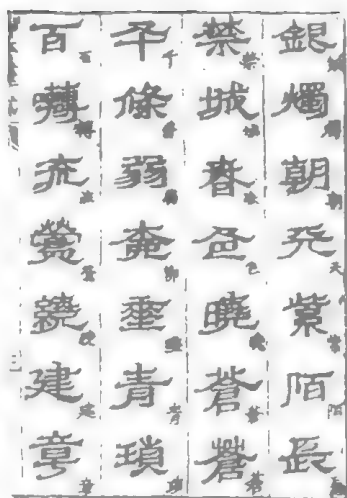 銀燭朝天紫陌長
禁城春色曉蒼蒼
千條弱柳垂青瑣
百囀流鶯繞建章
三